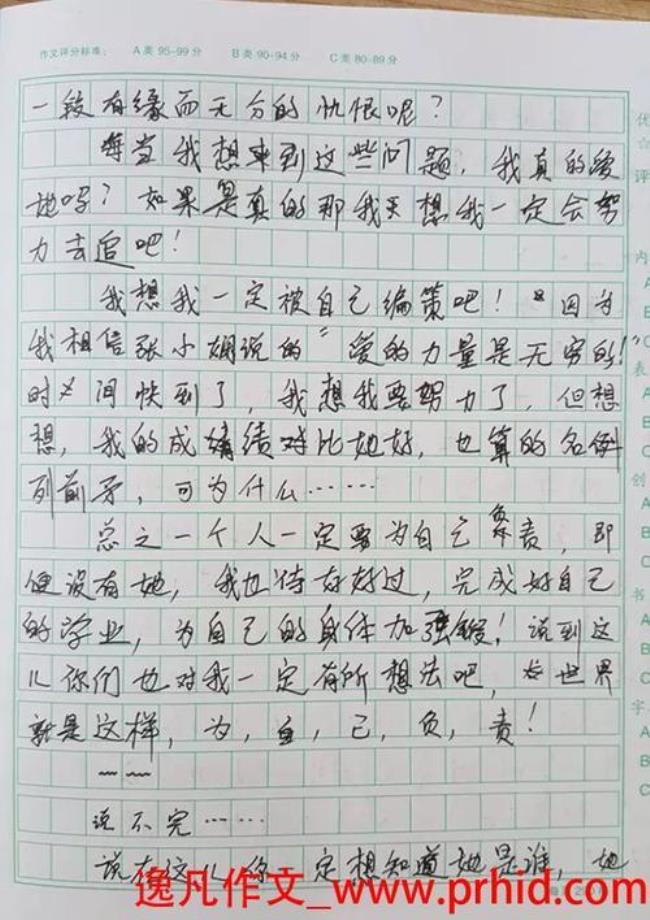 作文评分标准： A类95-99分 B类90-94分 C类80-89分
一段有缘而无分的仇恨呢？
每当我想来到这些问题，我真的爱
她吗？如果是真的那我天想我一定会努
力去追吧！
我想我一定被自己编策吧！因为
我相信张小娴说的“爱的力量是无穷的！”
时间快到了，我想我要努力了，但想
想，我的成绩对比她好，也算的名例
列前矛，可为什么……
总之一个人一定要为自己负责，即
便没有她，我也待好好过，完成好自己
的学业，为自己的身体加强锻！说到这
儿你们也对我一定有所想法吧，世界
就是这样，为，自，己，负，责！
说不完……
说在这儿你一定想知道她是谁，她
优
☆
评
内
A
B
C
表
A
B
C
创
A
B
C
书
A
B
C
字
A
B
C
逸凡作文_www.prhid.com